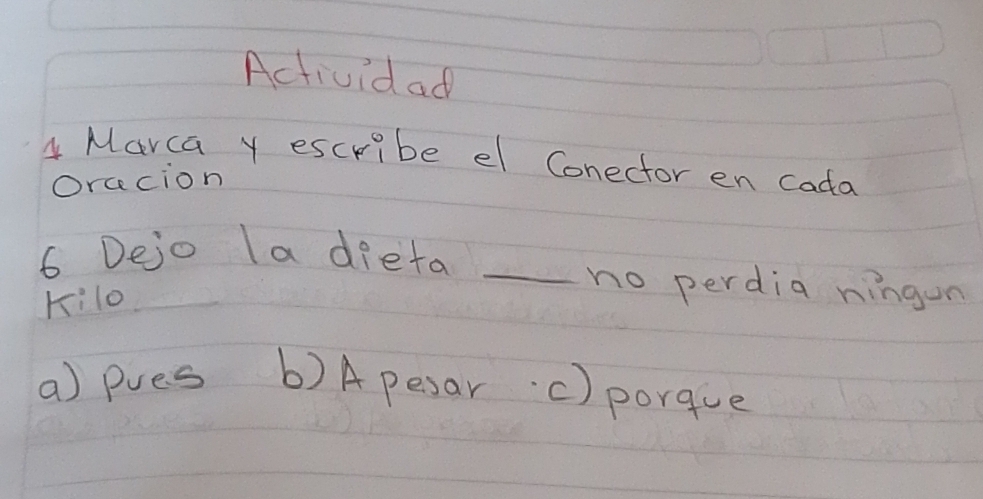 Actividad
1 Marca y escribe el Conector en cada
Oracion
6 Dejo la dieta ___ no perdia ningun
Kilo
a) pues b) A pesar c) porque